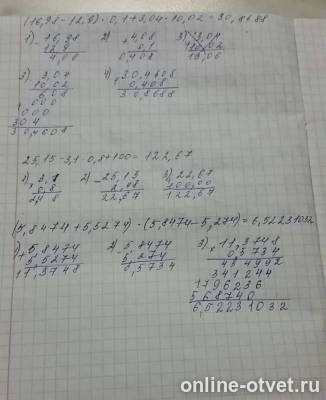 (16,98-12,9)·0,1+3,04·10,02=30,8688
1) 16,98 2) 4,08 3) 3,04
12,9 0,1 10,02
4,08 0,408 13,06
3) 3,04 4) 30,4608
10,02 0,408
608 30,8688
000
000
304
30,4608
25,15-3,1·0,8+100=122,67
1) 3,1 2) 25,15 3) 22,67
0,8 2,48 100,00
2,48 22,67 122,67
(5,8474+5,5274)·(5,8474-5,274)=6,52231032
1) 5,8474 2) 5,8474 3) 11,3748
5,5274 5,274 0,5734
11,3748 0,5734 454992
341244
796236
568740
6,52231032
online-otvet.ru